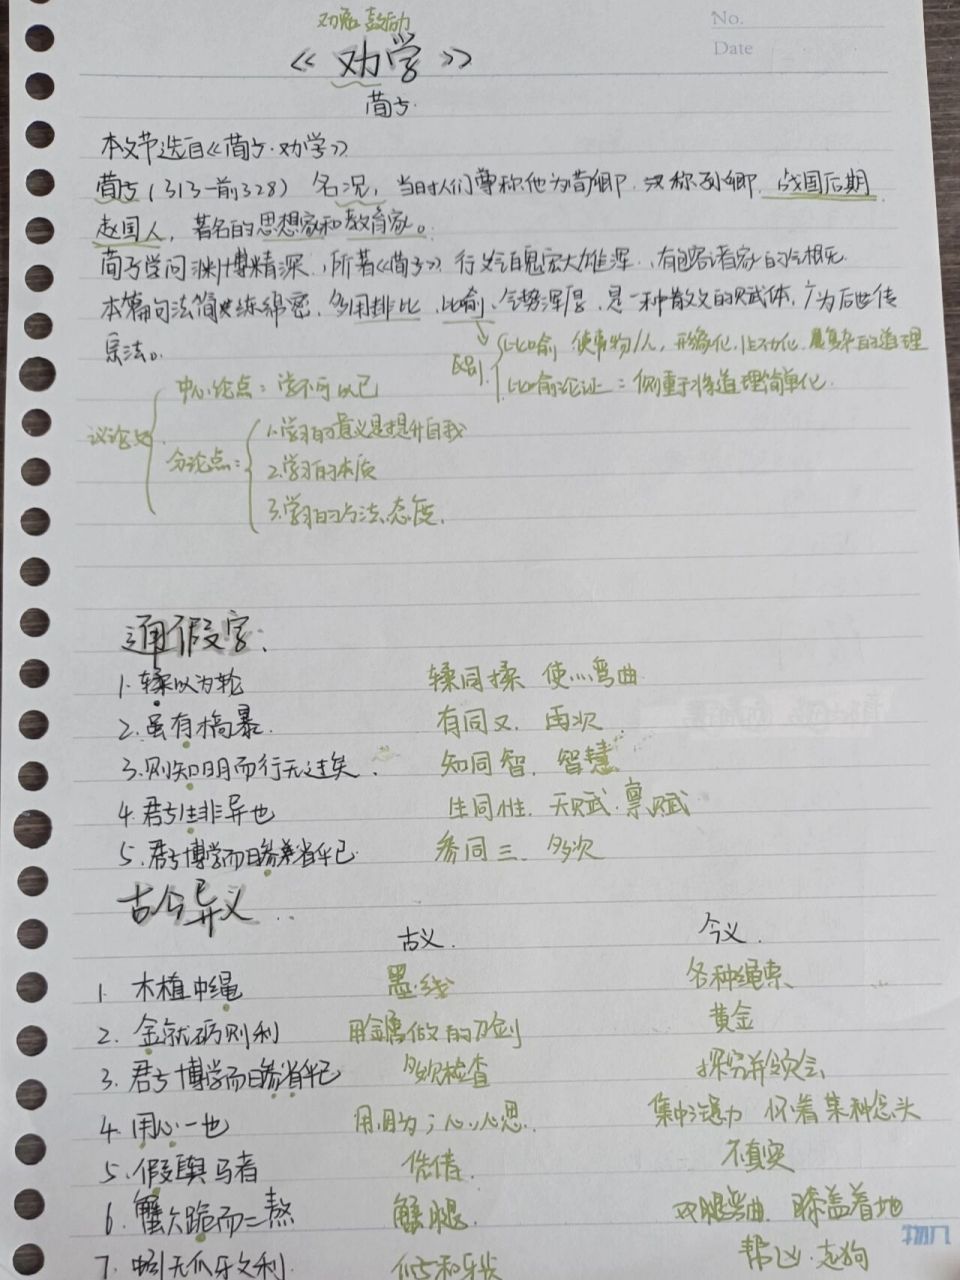 No.
Date
劝勉 鼓励
《劝学》
荀子.
本文节选自《荀子·劝学》
荀子(313-前328) 名况,当时人们尊称他为荀卿.汉称孙卿.战国后期
赵国人,著名的思想家和教育家。
荀子学问渊博精深,所著《荀子》行文气魄宏大雄浑,有包容诸家的气概.
本篇句法简练绵密.多用排比.比喻,气势浑厚.是一种散文的赋体,广为后世传
宗法。
区别.
比喻 使事物/人,形象化,生动化,复杂的道理
比喻论证:侧重于将道理简单化.
议论文
中心论点:学不可以已
分论点:
1.学习的意义是提升自我
2.学习的本质
3.学习的方法、态度.
通假字:
1.輮以为轮 輮同揉 使…弯曲
2.虽有槁暴. 有同又.再次
3.则知明而行无过矣. 知同智.智慧
4.君子生非异也 生同性.天赋.禀赋
5.君子博学而日参乎省乎己 参同三.多次
古今异义..
古义. 今义.
1. 木植中绳 墨线 各种绳索
2. 金就砺则利 用金属做的刀剑 黄金
3. 君子博学而日参省乎己 多次检查 探究并领会
4. 用心一也 用,因为;心,心思. 集中注意力 怀着某种念头
5. 假舆马者 凭借. 不真实
6. 蟹六跪而二螯 蟹腿. 双腿弯曲.膝盖着地
7. 蚓无爪牙之利. 爪子和牙齿 帮凶.走狗